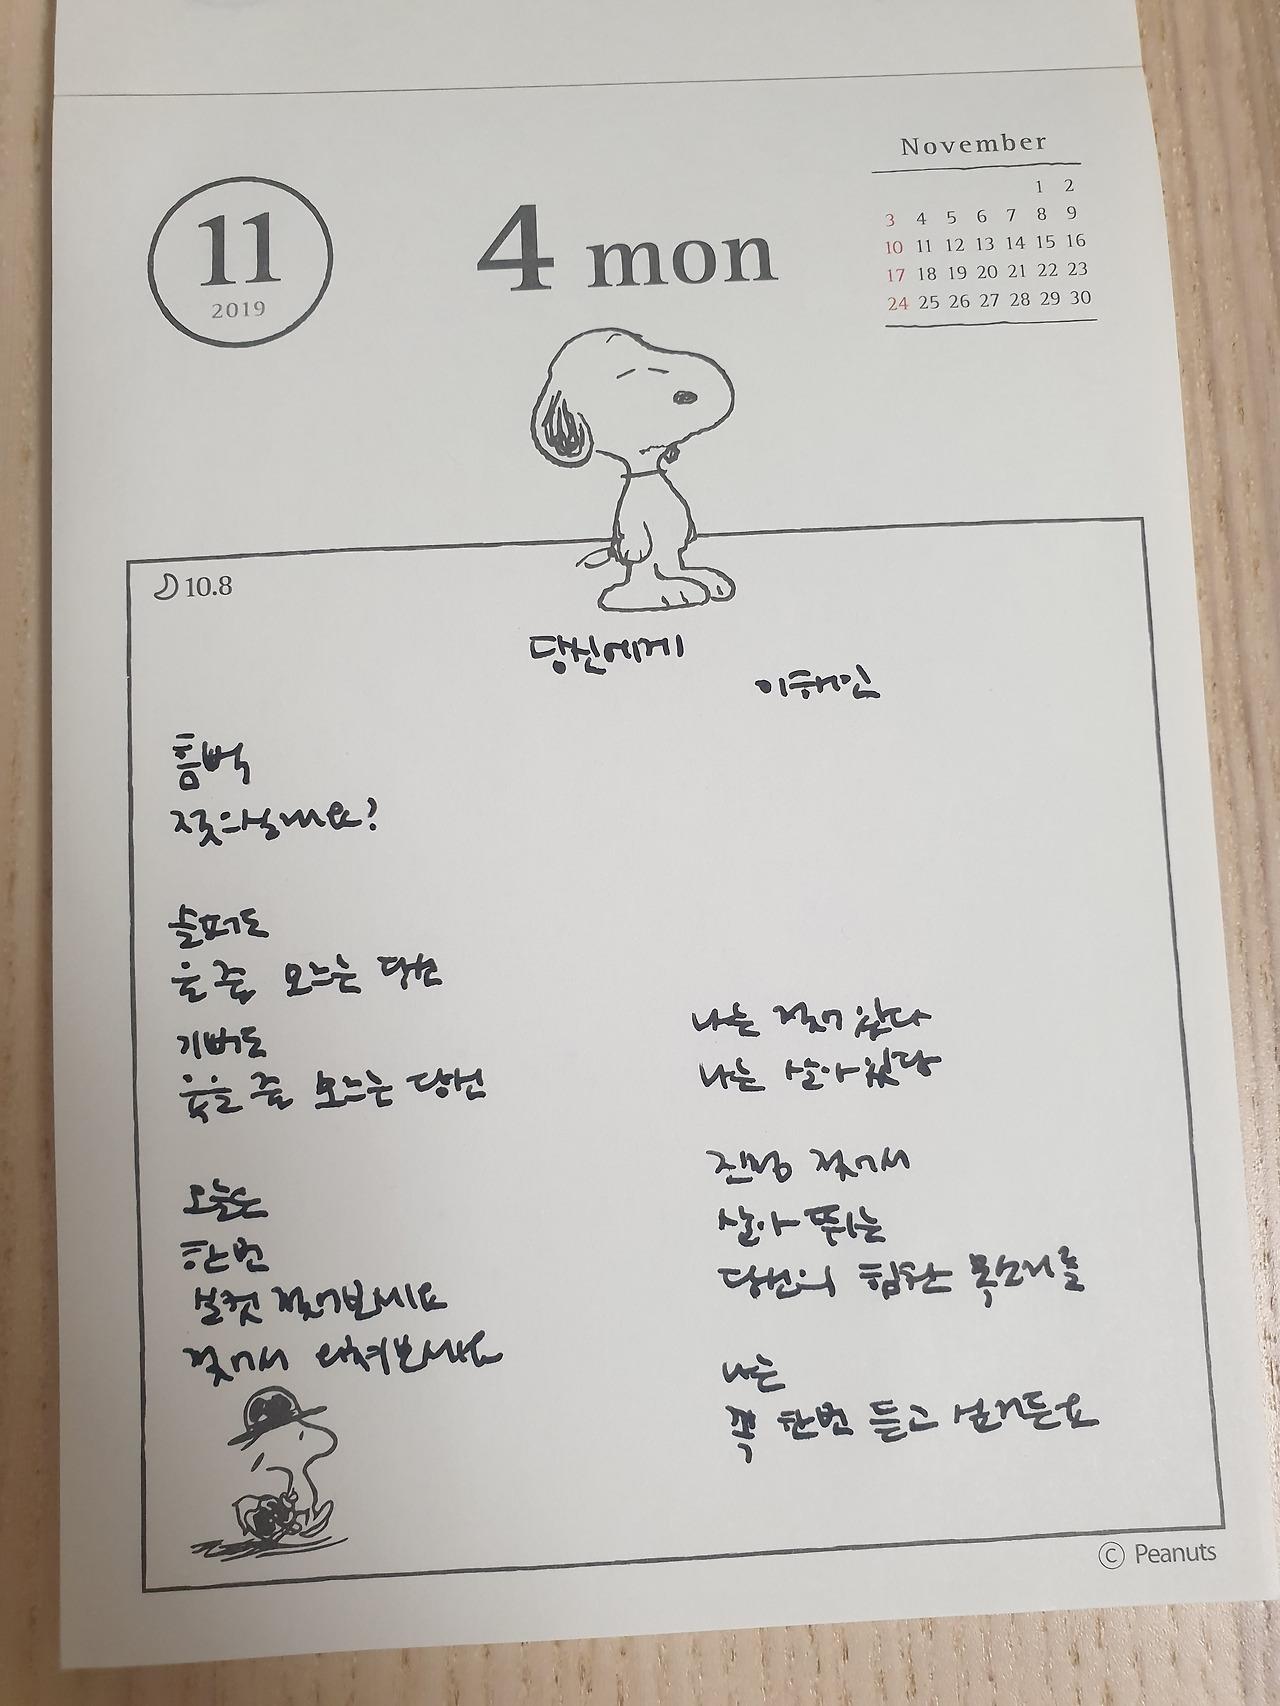 November
1 2
3 4 5 6 7 8 9
10 11 12 13 14 15 16
17 18 19 20 21 22 23
24 25 26 27 28 29 30
11
2019
4 mon
10.8
당신에게
이해인
흠뻑
젖으실래요?
슬퍼도
울 줄 모르는 당신
기뻐도
웃을 줄 모르는 당신
오늘은
한번
실컷 젖어보세요
젖어서 외쳐보세요
나는 젖어 있다
나는 살아있다
진정 젖어서
살아 뛰는
당신의 힘찬 목소리를
나는
꼭 한번 듣고 싶거든요
© Peanuts